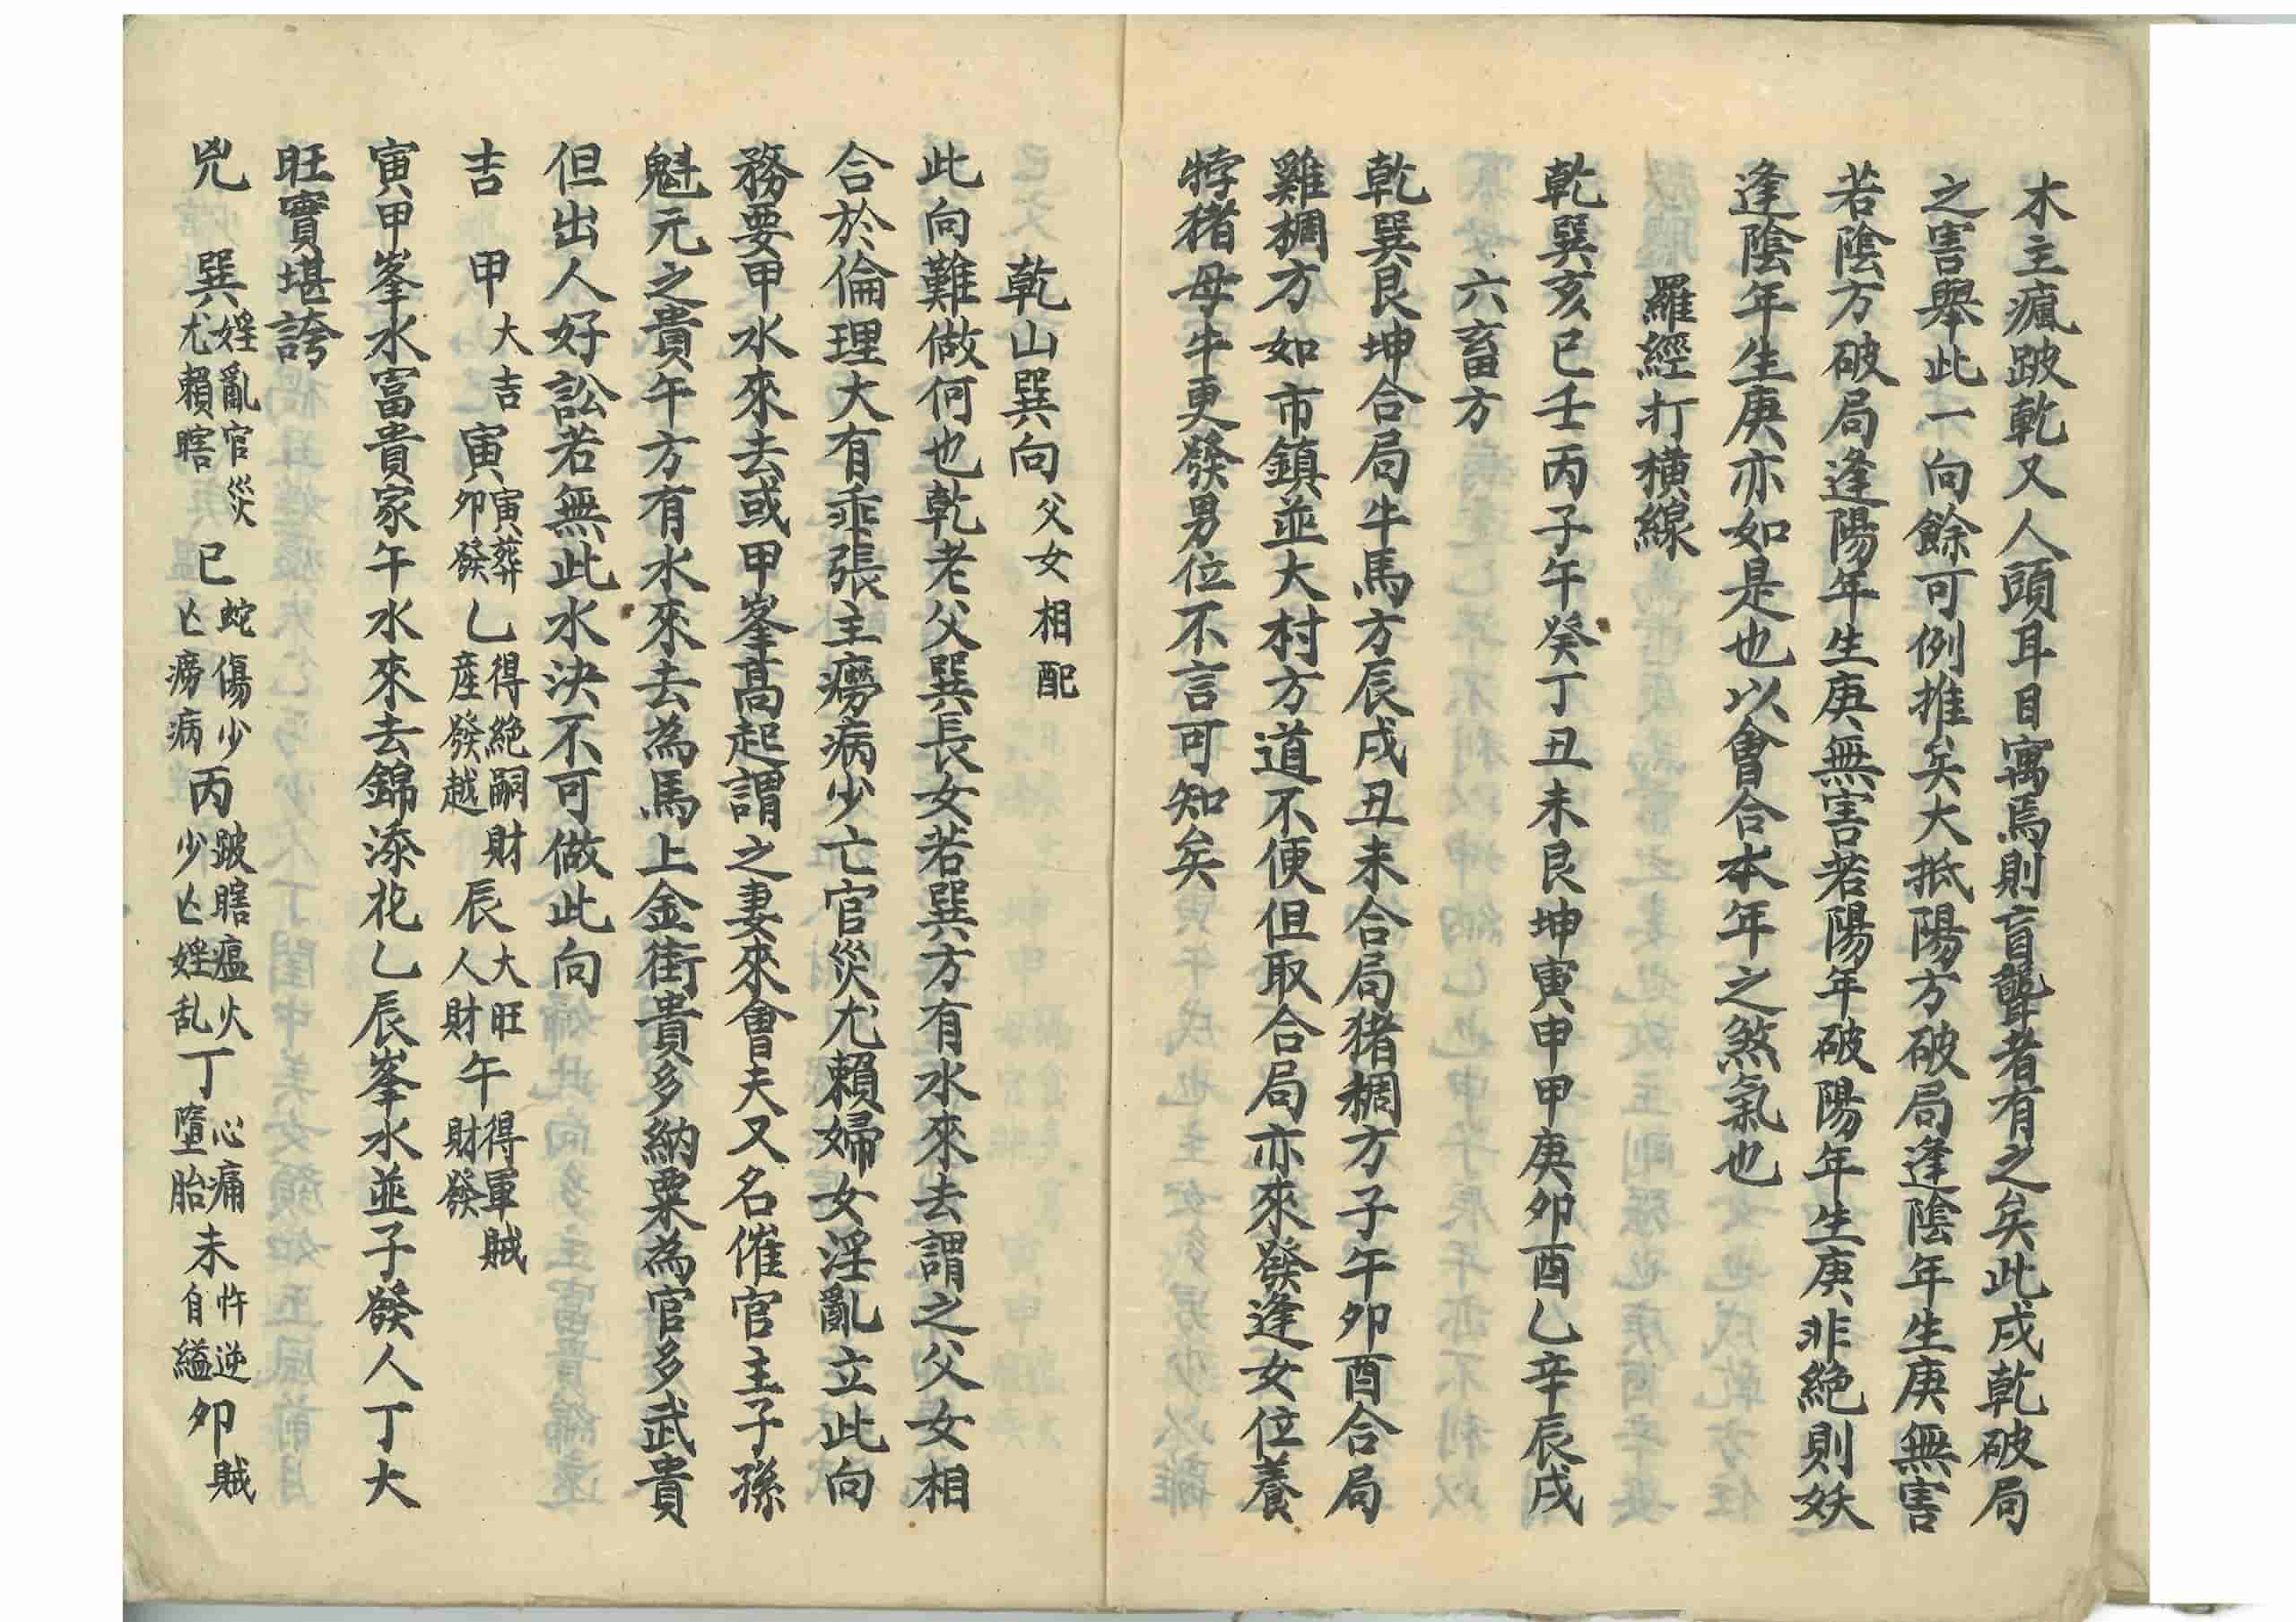 木主瘋跛乾又人頭耳目寓焉則盲聾者有之矣此戌乾破局
之害舉此一向餘可例推矣大抵陽方破局逢陰年生庚無害
若陰方破局逢陽年生庚無害若陽年破陽年生庚非絕則妖
逢陰年生庚亦如是也以會合本年之煞氣也
羅經打橫線
乾巽亥巳壬丙子午癸丁丑未艮坤寅申甲庚卯酉乙辛辰戌
六畜方
乾巽艮坤合局牛馬方辰戌丑未合局猪椆方子午卯酉合局
雞椆方如市鎮並大村方道不便但取合局亦來發逢女位養
牸猪母牛更發男位不言可知矣
乾山巽向 父女相配
此向難做何也乾老父巽長女若巽方有水來去謂之父女相
合於倫理大有乖張主癆病少亡官災尤賴婦女淫亂立此向
務要甲水來去或甲峯高起謂之妻來會夫又名催官主子孫
魁元之貴午方有水來去為馬上金街貴多納粟為官多武貴
但出人好訟若無此水決不可做此向
吉 甲 大吉 寅 寅葬卯發 乙 得絕嗣財產發越 辰 大旺人財 午 得軍賊財發
寅甲峯水富貴家午水來去錦添花乙辰峯水並子發人丁大
旺實堪誇
兇 巽 婬亂官災尤賴瞎 巳 蛇傷少亡癆病 丙 跛瞎瘟火少亡婬乱 丁 心痛墮胎 未 忤逆自縊 卯 賊